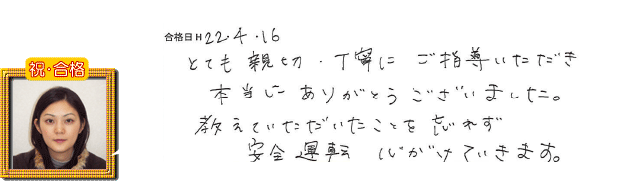 合格日 H 22.4.16
祝・合格
とても親切・丁寧に ご指導いただき
本当にありがとうございました。
教えていただいたことを 忘れず
安全運転 心がけていきます。